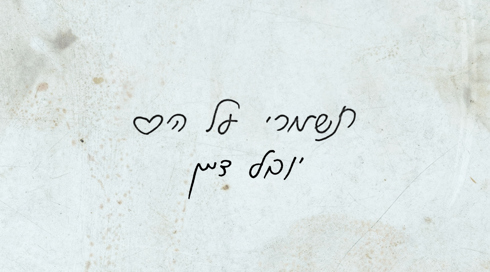 תשמרי על ה-♡
יובל דיין